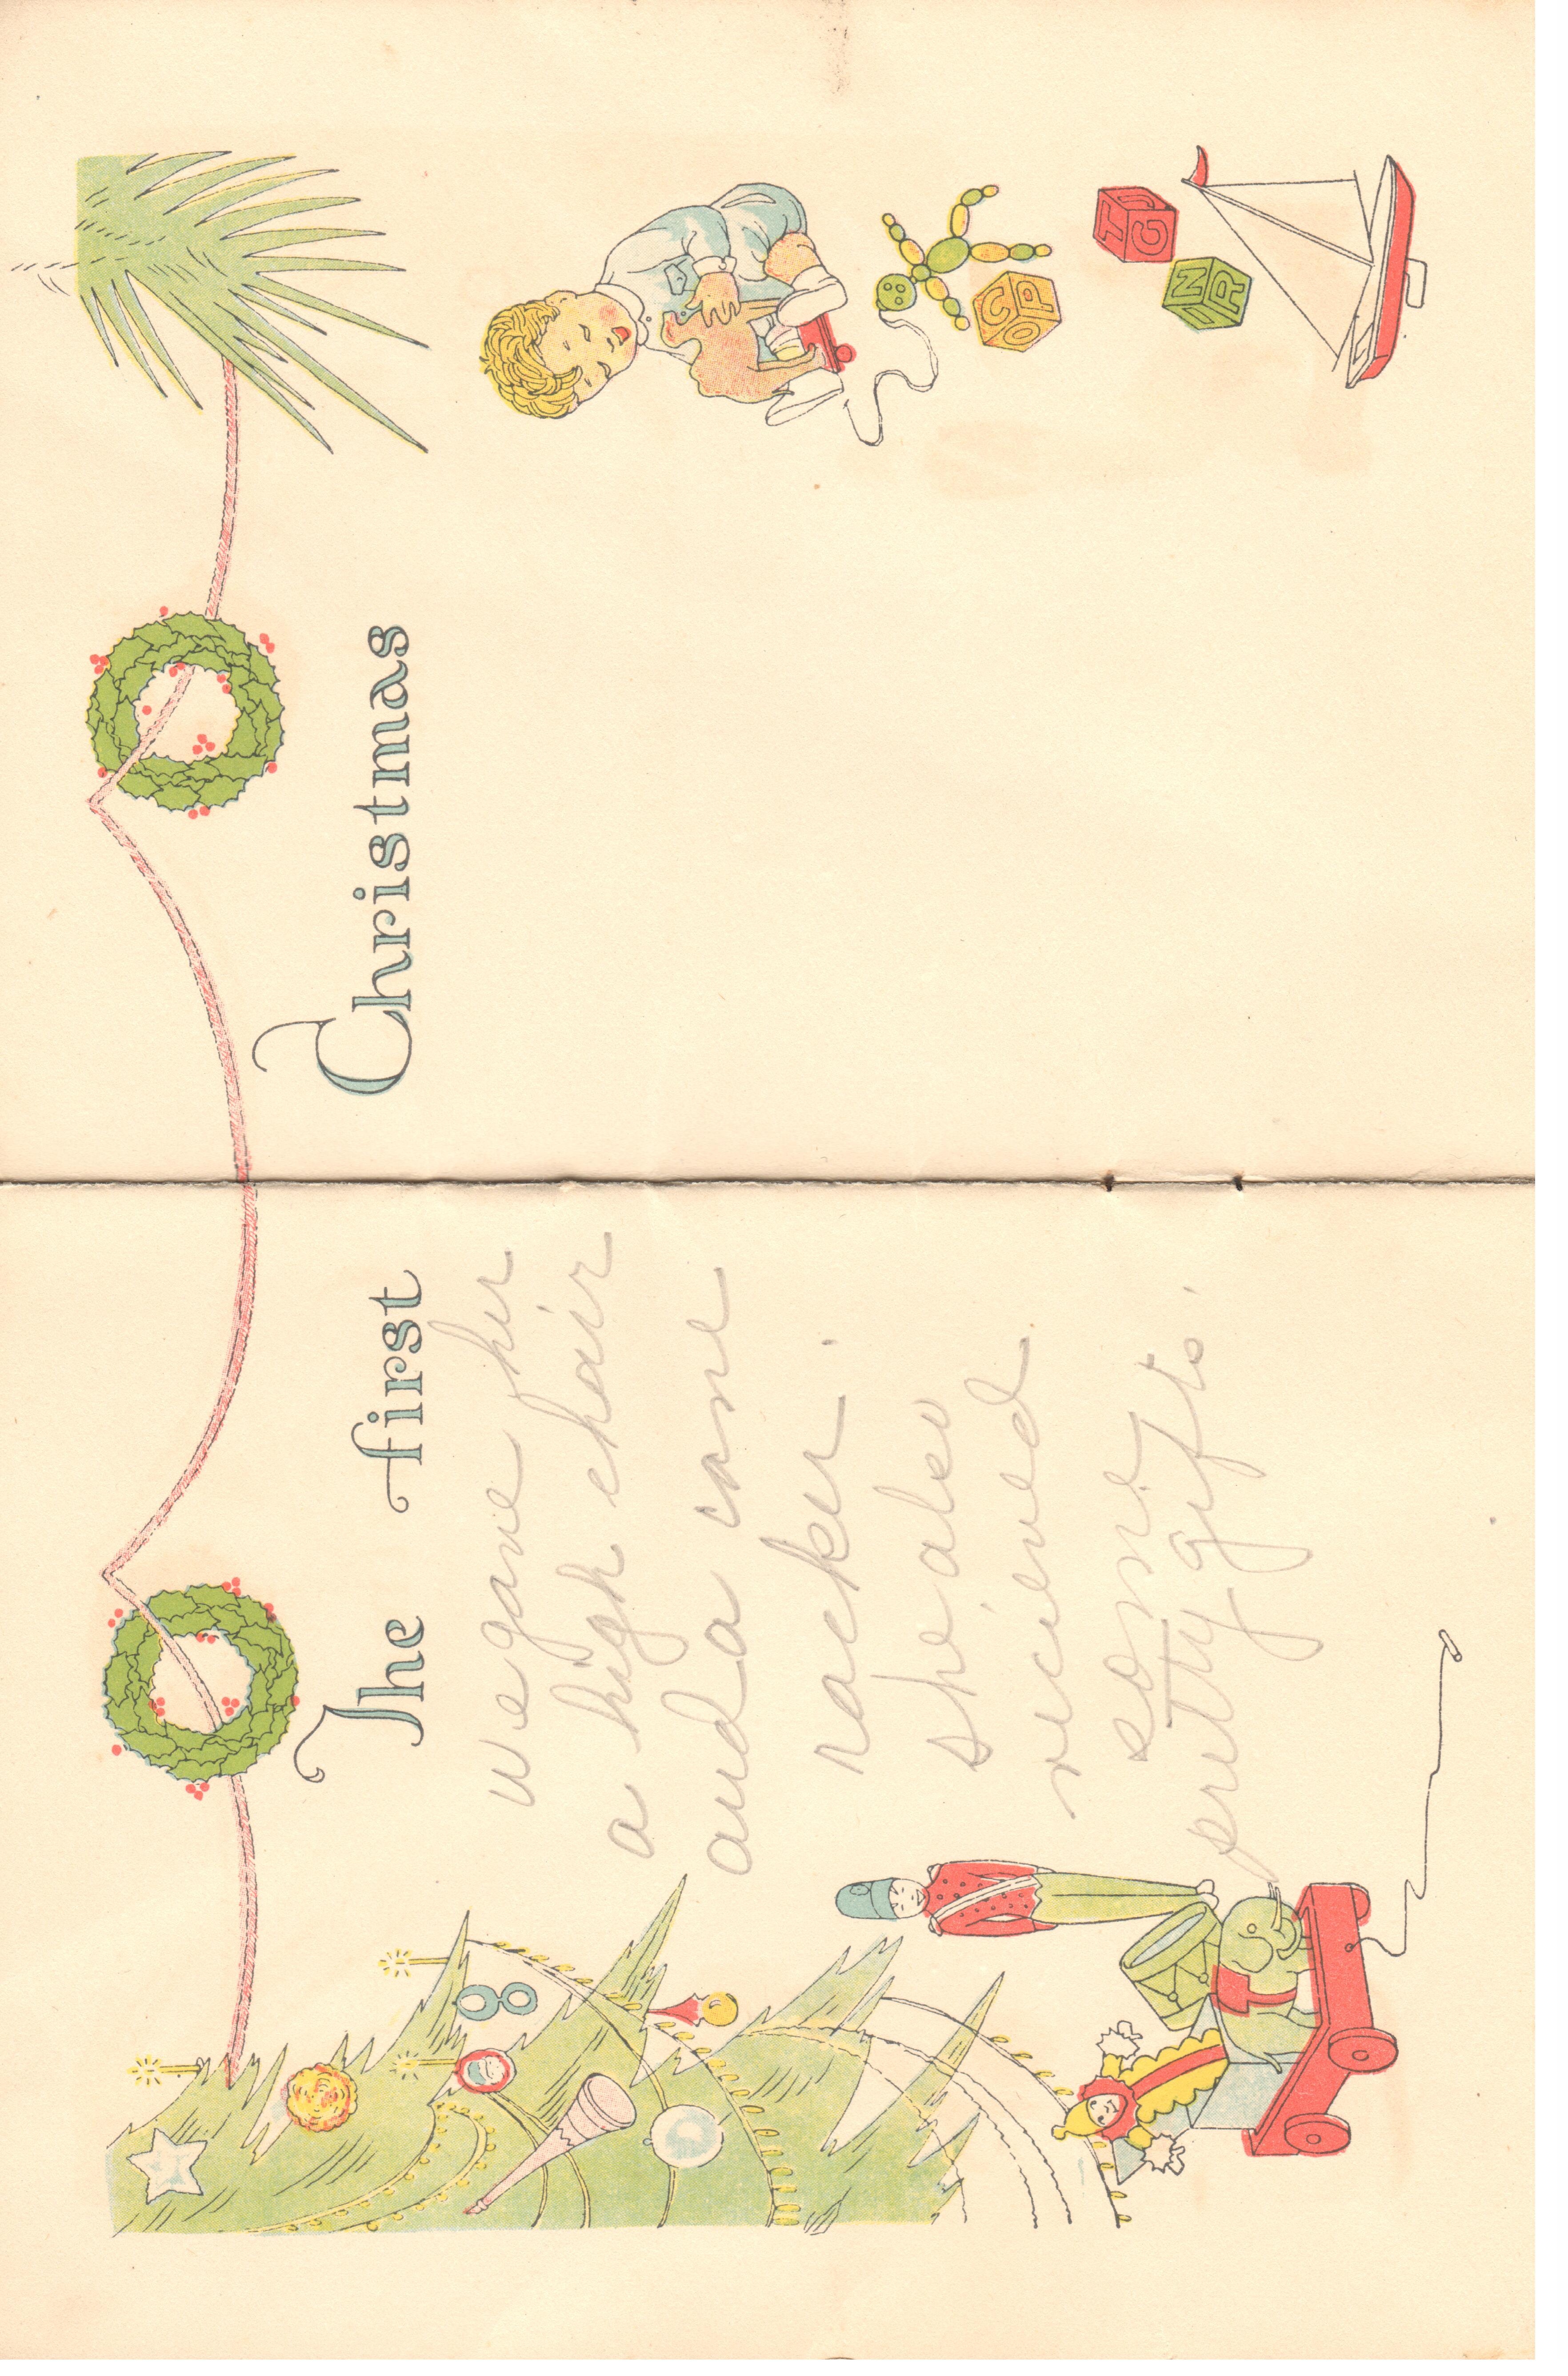 The first Christmas
we gave her
a high chair
and a cane
rocker.
she also
recieved
some
pretty gifts.
C
O P
T
G
N
R